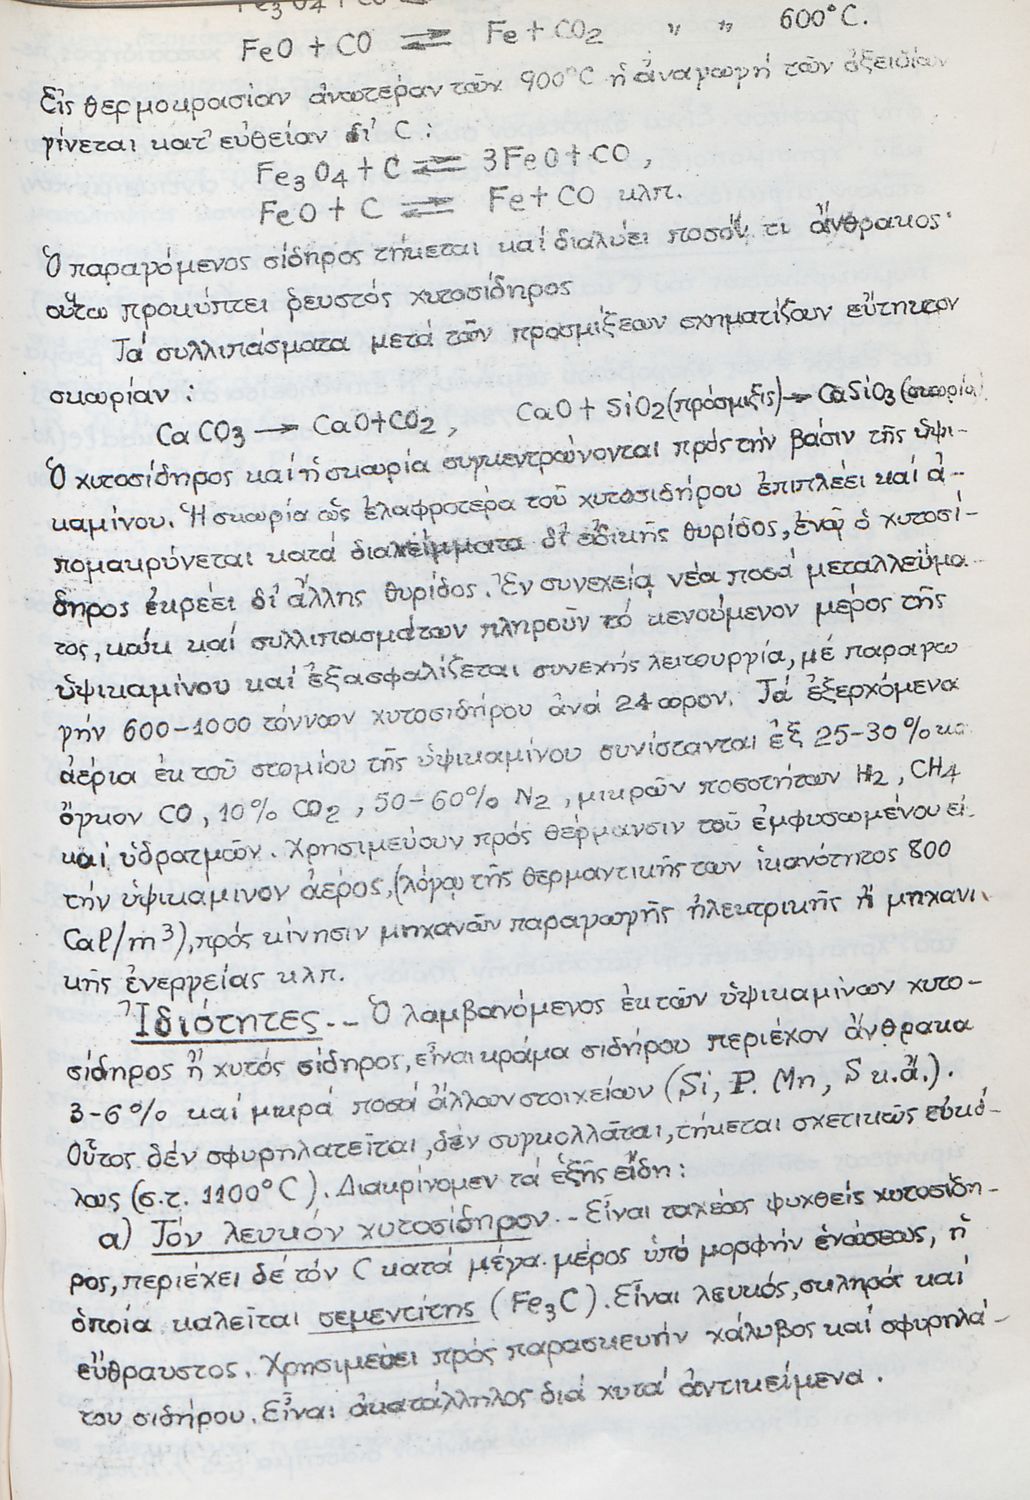 Fe₃O₄ + CO
FeO + CO ⇌ Fe + CO₂ " " 600°C.
Εἰς θερμοκρασίαν ἀνωτέραν τῶν 900°C ἡ ἀναγωγή τῶν ὀξειδίων
γίνεται κατ' εὐθείαν δι' C :
Fe₃O₄ + C ⇌ 3FeO + CO ,
FeO + C ⇌ Fe + CO κλπ.
Ὁ παραγόμενος σίδηρος τήκεται καί διαλύει ποσόν τι ἄνθρακος·
οὕτω προκύπτει ρευστός χυτοσίδηρος
Τά συλλιπάσματα μετά τῶν προσμίξεων σχηματίζουν εὔτηκτον
σκωρίαν :
CaCO₃ → CaO+CO₂ , CaO + SiO₂ (πρόσμιξις) → CaSiO₃ (σκωρία)
Ὁ χυτοσίδηρος καί ἡ σκωρία συγκεντρώνονται πρός τήν βάσιν τῆς ὑψι-
καμίνου. Ἡ σκωρία ὡς ἐλαφροτέρα τοῦ χυτοσιδήρου ἐπιπλέει καί ἀ-
πομακρύνεται κατά διαλείμματα δι' εἰδικῆς θυρίδος, ἐνῷ ὁ χυτοσί-
δηρος ἐκρέει δι' ἄλλης θυρίδος. Ἐν συνεχείᾳ νέα ποσά μεταλλεύμα-
τος, κώκ καί συλλιπασμάτων πληροῦν τό κενούμενον μέρος τῆς
ὑψικαμίνου καί ἐξασφαλίζεται συνεχής λειτουργία, μέ παραγω
γήν 600-1000 τόννων χυτοσιδήρου ἀνά 24ωρον. Τά ἐξερχόμενα
ἀέρια ἐκ τοῦ στομίου τῆς ὑψικαμίνου συνίστανται ἐξ 25-30% κα
ὄγκον CO, 10% CO₂ , 50-60% N₂ , μικρῶν ποσοτήτων H₂ , CH₄
καί ὑδρατμῶν. Χρησιμεύουν πρός θέρμανσιν τοῦ ἐμφυσωμένου εἰ
τήν ὑψικαμινον ἀέρος, (λόγῳ τῆς θερμαντικῆς των ἱκανότητος 800
Cal/m³), πρός κίνησιν μηχανῶν παραγωγῆς ἠλεκτρικῆς ἤ μηχανι
κῆς ἐνεργείας κλπ.
Ἰδιότητες.-- Ὁ λαμβανόμενος ἐκ τῶν ὑψικαμίνων χυτο-
σίδηρος ἤ χυτός σίδηρος, εἶναι κράμα σιδήρου περιέχον ἄνθρακα
3-6% καί μικρά ποσά ἄλλων στοιχείων (Si, P. Mn, S κ.ἄ.).
Οὗτος δέν σφυρηλατεῖται, δέν συγκολλᾶται, τήκεται σχετικῶς εὐκό-
λως (σ.τ. 1100°C). Διακρίνομεν τά ἑξῆς εἴδη :
α) Τόν λευκόν χυτοσίδηρον.-- Εἶναι ταχέως ψυχθείς χυτοσίδη-
ρος, περιέχει δέ τόν C κατά μέγα μέρος ὑπό μορφήν ἑνώσεως, ἡ
ὁποία καλεῖται σεμεντίτης (Fe₃C). Εἶναι λευκός, σκληρός καί
εὔθραυστος. Χρησιμεύει πρός παρασκευήν χάλυβος καί σφυρηλά-
του σιδήρου. Εἶναι ἀκατάλληλος διά χυτά ἀντικείμενα.